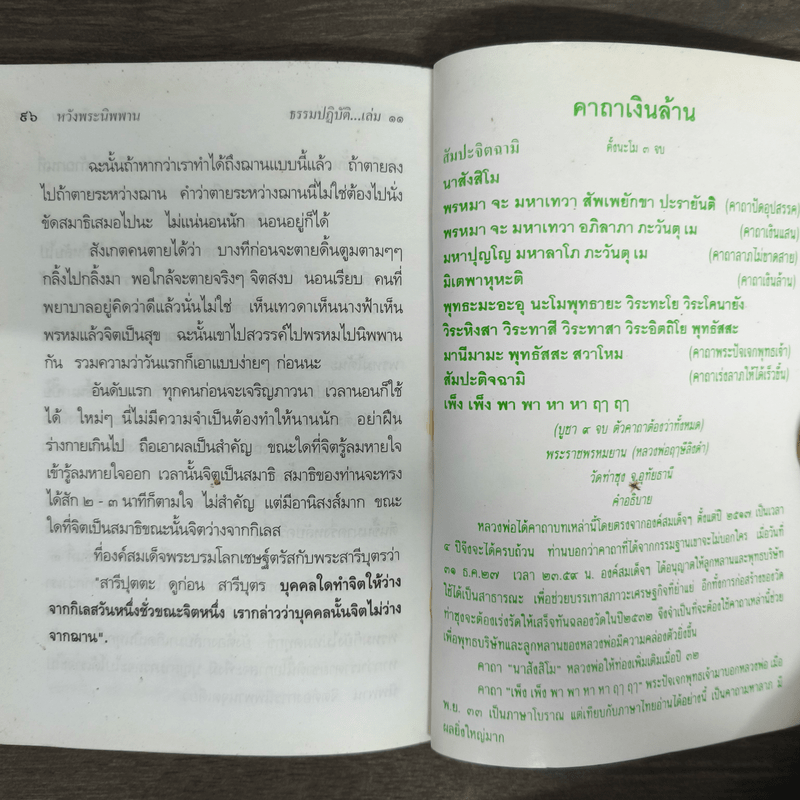 ๙๖ หวังพระนิพพาน ธรรมปฏิบัติ...เล่ม ๑๑
ฉะนั้นถ้าหากว่าเราทำได้ถึงฌานแบบนี้แล้ว ถ้าตายลง
ไปถ้าตายระหว่างฌาน คำว่าตายระหว่างฌานนี่ไม่ใช่ต้องไปนั่ง
ขัดสมาธิเสมอไปนะ ไม่แน่นอนนัก นอนอยู่ก็ได้
สังเกตคนตายได้ว่า บางทีก่อนจะตายดิ้นตูมตามๆๆ
กลิ้งไปกลิ้งมา พอใกล้จะตายจริงๆ จิตสงบ นอนเรียบ คนที่
พยาบาลอยู่คิดว่าดีแล้วนั่นไม่ใช่ เห็นเทวดาเห็นนางฟ้าเห็น
พรหมแล้วจิตเป็นสุข ฉะนั้นเขาไปสวรรค์ไปพรหมไปนิพพาน
กัน รวมความว่าวันแรกก็เอาแบบง่ายๆ ก่อนนะ
อันดับแรก ทุกคนก่อนจะเจริญภาวนา เวลานอนก็ใช้
ได้ ใหม่ๆ นี่ไม่มีความจำเป็นต้องทำให้นานนัก อย่าฝืน
ร่างกายเกินไป ถือเอาผลเป็นสำคัญ ขณะใดที่จิตรู้ลมหายใจ
เข้ารู้ลมหายใจออก เวลานั้นจิตเป็นสมาธิ สมาธิของท่านจะทรง
ได้สัก ๒ - ๓ นาทีก็ตามใจ ไม่สำคัญ แต่มีอานิสงส์มาก ขณะ
ใดที่จิตเป็นสมาธิขณะนั้นจิตว่างจากกิเลส
ที่องค์สมเด็จพระบรมโลกเชษฐ์ตรัสกับพระสารีบุตรว่า
"สารีปุตตะ ดูก่อน สารีบุตร บุคคลใดทำจิตให้ว่าง
จากกิเลสวันหนึ่งชั่วขณะจิตหนึ่ง เรากล่าวว่าบุคคลนั้นจิตไม่ว่าง
จากฌาน".
คาถาเงินล้าน
สัมปะจิตฉามิ ตั้งนะโม ๓ จบ
นาสังสิโม
พรหมา จะ มหาเทวา สัพเพยักขา ปะรายันติ (คาถาปัดอุปสรรค)
พรหมา จะ มหาเทวา อภิลาภา ภะวันตุ เม (คาถาเงินแสน)
มหาปุญโญ มหาลาโภ ภะวันตุ เม (คาถาลาภไม่ขาดสาย)
มิเตพาหุหะติ (คาถาเงินล้าน)
พุทธะมะอะอุ นะโมพุทธายะ วิระทะโย วิระโคนายัง
วิระหิงสา วิระทาสี วิระทาสา วิระอิตถิโย พุทธัสสะ
มานีมามะ พุทธัสสะ สวาโหม (คาถาพระปัจเจกพุทธเจ้า)
สัมปะติจฉามิ (คาถาเร่งลาภให้ได้เร็วขึ้น)
เพ็ง เพ็ง พา พา หา หา ฤๅ ฤๅ
(บูชา ๙ จบ ตัวคาถาต้องว่าทั้งหมด)
พระราชพรหมยาน (หลวงพ่อฤๅษีลิงดำ)
วัดท่าซุง จ.อุทัยธานี
คำอธิบาย
หลวงพ่อได้คาถาบทเหล่านี้โดยตรงจากองค์สมเด็จฯ ตั้งแต่ปี ๒๕๑๗ เป็นเวลา
๔ ปีจึงจะได้ครบถ้วน ท่านบอกว่าคาถาที่ได้จากกรรมฐานเขาจะไม่บอกใคร เมื่อวันที่
๓๑ ธ.ค.๒๗ เวลา ๒๓.๕๙ น. องค์สมเด็จฯ ได้อนุญาตให้ลูกหลานและพุทธบริษัท
ใช้ได้เป็นสาธารณะ เพื่อช่วยบรรเทาสภาวะเศรษฐกิจที่ย่ำแย่ อีกทั้งการก่อสร้างของวัด
ท่าซุงจะต้องเร่งรัดให้เสร็จทันฉลองวัดในปี๒๕๓๒ จึงจำเป็นที่จะต้องใช้คาถาเหล่านี้ช่วย
เพื่อพุทธบริษัทและลูกหลานของหลวงพ่อมีความคล่องตัวยิ่งขึ้น
คาถา "นาสังสิโม" หลวงพ่อให้ท่องเพิ่มเติมเมื่อปี ๓๒
คาถา "เพ็ง เพ็ง พา พา หา หา ฤๅ ฤๅ" พระปัจเจกพุทธเจ้ามาบอกหลวงพ่อ เมื่อ
พ.ย. ๓๓ เป็นภาษาโบราณ แต่เทียบกับภาษาไทยอ่านได้อย่างนี้ เป็นคาถามหาลาภ มี
ผลยิ่งใหญ่มาก